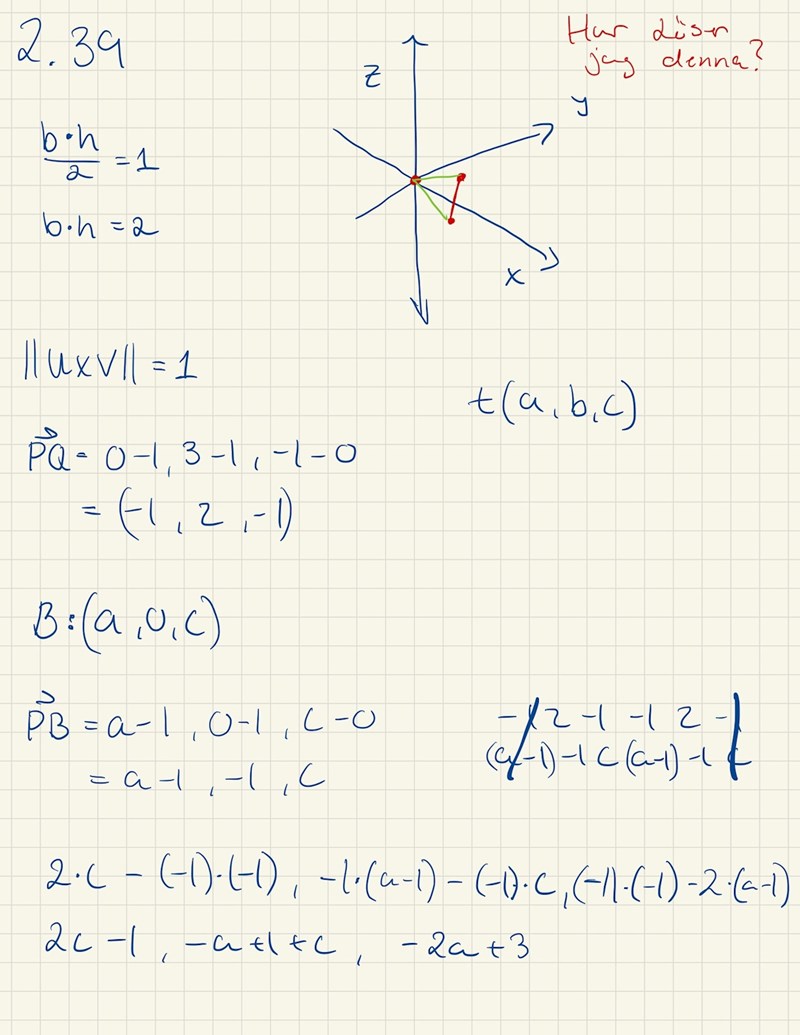 2.39
Hur löser
jag denna?
z
y
x
b·h/2 = 1
b·h = 2
||u×v|| = 1
t(a,b,c)
PQ = 0-1, 3-1, -1-0
= (-1, 2, -1)
B:(a,0,c)
PB = a-1, 0-1, c-0
= a-1, -1, c
-1 2 -1 -1 2 -1
(a-1) -1 c (a-1) -1 c
2·c - (-1)·(-1), -1·(a-1) - (-1)·c, (-1)·(-1) - 2·(a-1)
2c - 1, -a+1+c, -2a+3